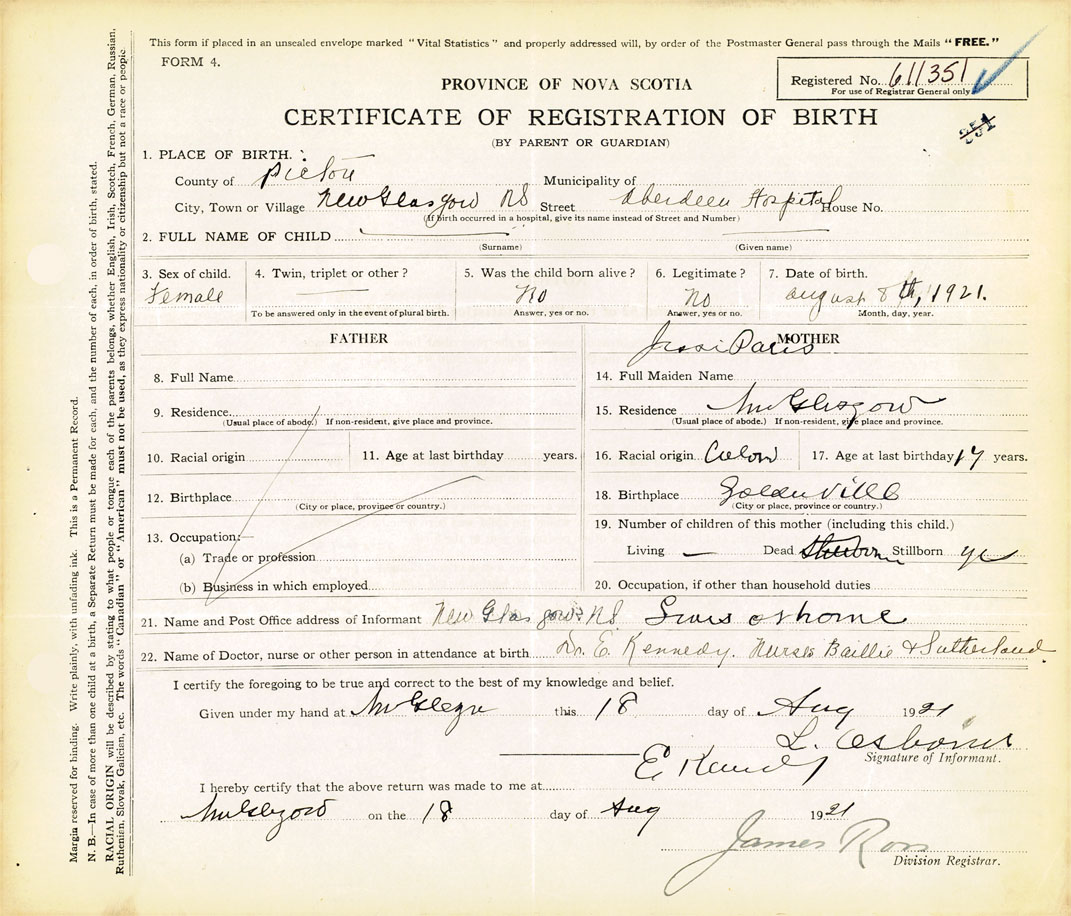 This form if placed in an unsealed envelope marked "Vital Statistics" and properly addressed will, by order of the Postmaster General pass through the Mails "FREE."
FORM 4.
Registered No. 611351
For use of Registrar General only
351
PROVINCE OF NOVA SCOTIA
CERTIFICATE OF REGISTRATION OF BIRTH
(BY PARENT OR GUARDIAN)
1. PLACE OF BIRTH.
County of Pictou Municipality of
City, Town or Village New Glasgow NS Street Aberdeen Hospital House No.
(If birth occurred in a hospital, give its name instead of Street and Number)
2. FULL NAME OF CHILD
(Surname) (Given name)
3. Sex of child. 4. Twin, triplet or other? 5. Was the child born alive? 6. Legitimate? 7. Date of birth.
Female No No August 8th, 1921.
To be answered only in the event of plural birth. Answer, yes or no. Answer, yes or no. Month, day, year.
FATHER
8. Full Name
9. Residence
(Usual place of abode.) If non-resident, give place and province.
10. Racial origin 11. Age at last birthday years.
12. Birthplace
(City or place, province or country.)
13. Occupation:—
(a) Trade or profession
(b) Business in which employed
MOTHER
Paris
14. Full Maiden Name
15. Residence Glasgow
(Usual place of abode.) If non-resident, give place and province.
16. Racial origin 17. Age at last birthday 17 years.
18. Birthplace Goldenville
(City or place, province or country.)
19. Number of children of this mother (including this child.)
Living — Dead Stillborn Stillborn
20. Occupation, if other than household duties
21. Name and Post Office address of Informant New Glasgow NS. Osborne
22. Name of Doctor, nurse or other person in attendance at birth Dr. E. Kennedy. Nurses Baillie & Sutherland.
I certify the foregoing to be true and correct to the best of my knowledge and belief.
Given under my hand at this 18 day of Aug 1921
L. Osborne
Signature of Informant.
E Kennedy
I hereby certify that the above return was made to me at
on the 18 day of Aug 1921
James Ross
Division Registrar.
Margin reserved for binding. Write plainly, with unfading ink. This is a Permanent Record.
N. B.—In case of more than one child at a birth, a Separate Return must be made for each, and the number of each, in order of birth, stated.
RACIAL ORIGIN will be described by stating to what people or tongue each of the parents belongs, whether English, Irish, Scotch, French, German, Russian,
Ruthenian, Slovak, Galician, etc. The words "Canadian" or "American" must not be used, as they express nationality or citizenship but not a race or people.